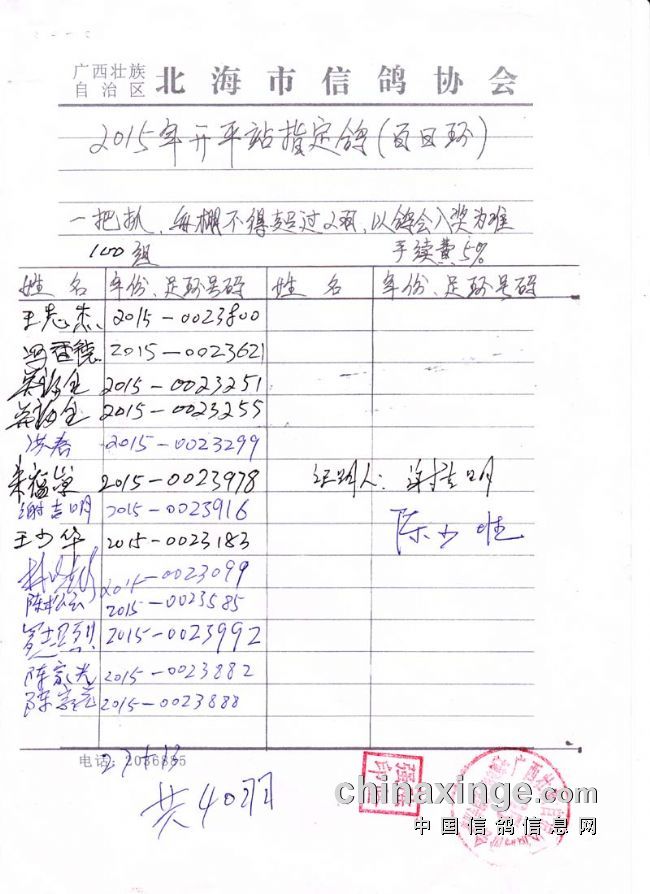 广西壮族
自治区 北海市信鸽协会
2015年开平站指定鸽(百日环)
一把扒,每棚不得超过2羽,以鸽会入奖为准
100组 手续费5%
姓 名 年份、足环号码 姓 名 年份、足环号码
王志杰 2015-0023800
冯香德 2015-0023621
2015-0023251
2015-0023255
洪春 2015-0023299
2015-0023978 证明人:谢吉明
谢吉明 2015-0023916
陈少雄
王少华 2015-0023183
2015-0023099
陈松 2015-0023585
2015-0023992
陈家光 2015-0023882
陈家光 2015-0023888
电话: 2036885
27+13
共40羽
chinaxinge.com
中国信鸽信息网
广西壮